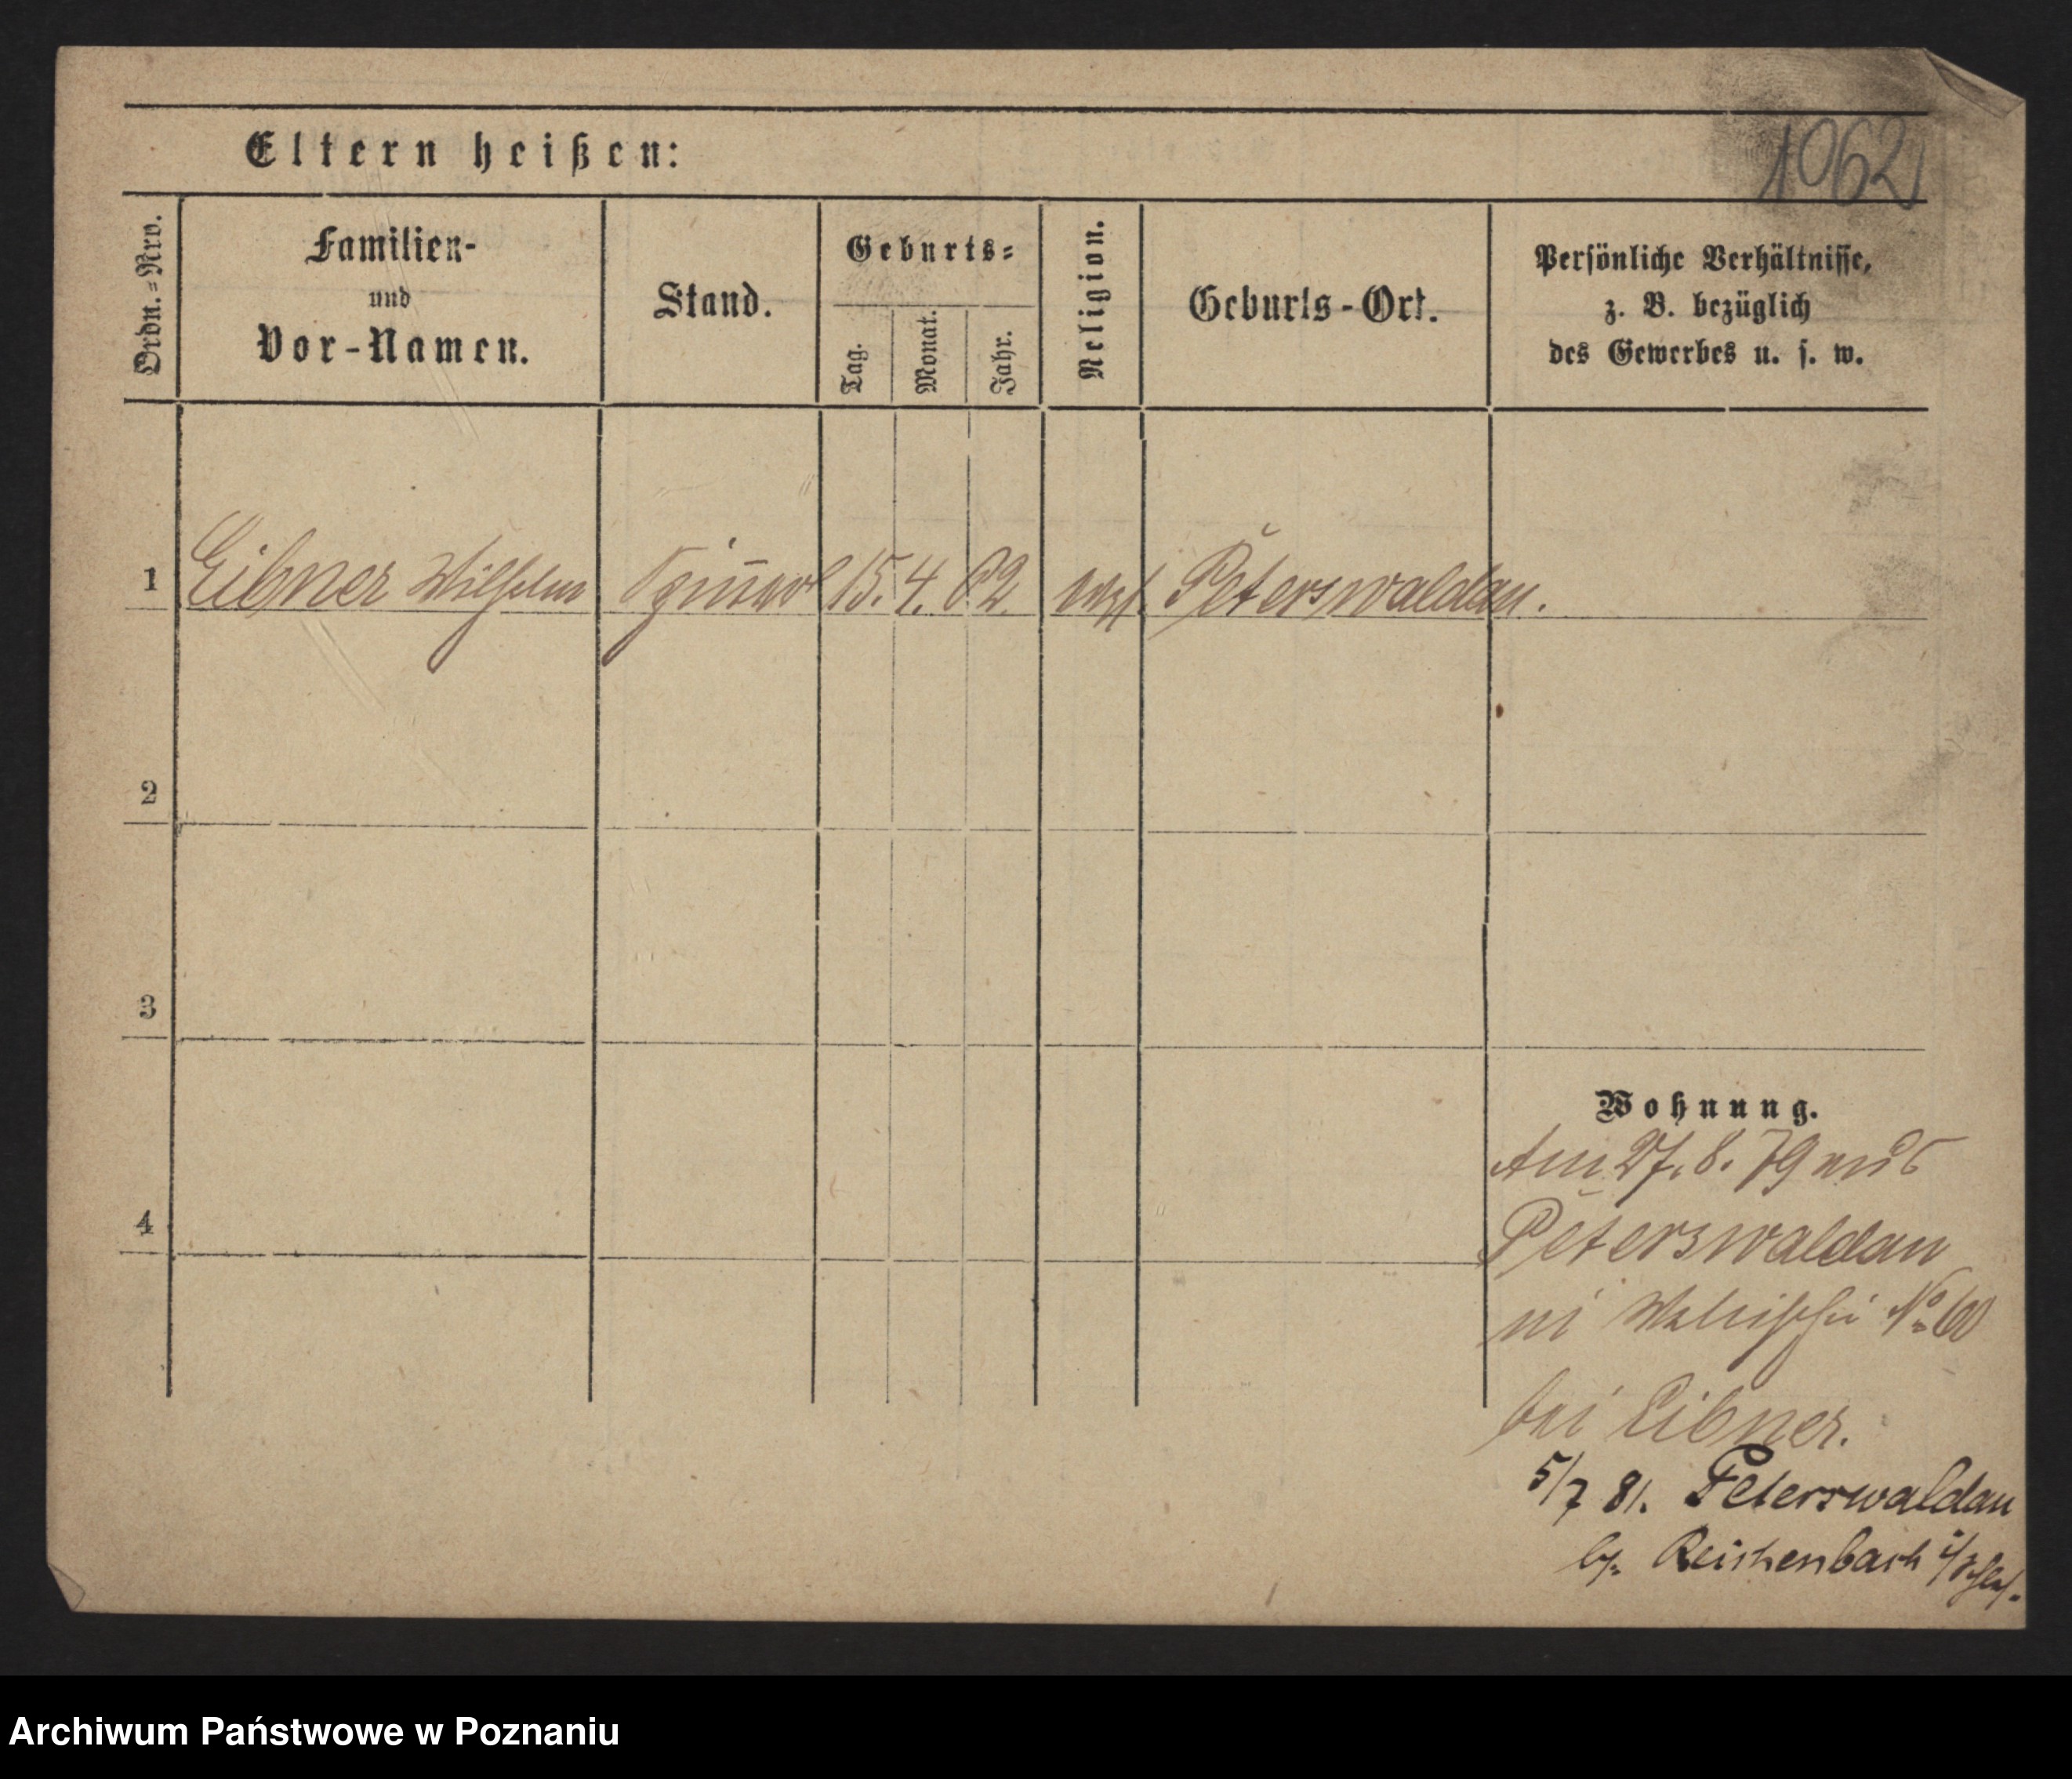 1062
Eltern heißen:
Ordn.-Nro.
Familien-
und
Vor-Namen.
Stand.
Geburts-
Tag.
Monat.
Jahr.
Religion.
Geburts-Ort.
Persönliche Verhältnisse,
z. B. bezüglich
des Gewerbes u. s. w.
1 Eibner Wilhelm 15. 4. 62. Peterswaldau.
2
3
4
Wohnung.
Am 27. 8. 79 aus
Peterswaldau
No 60
bei Eibner.
5/7 81. Peterswaldau
Reichenbach i/Schles.
Archiwum Państwowe w Poznaniu